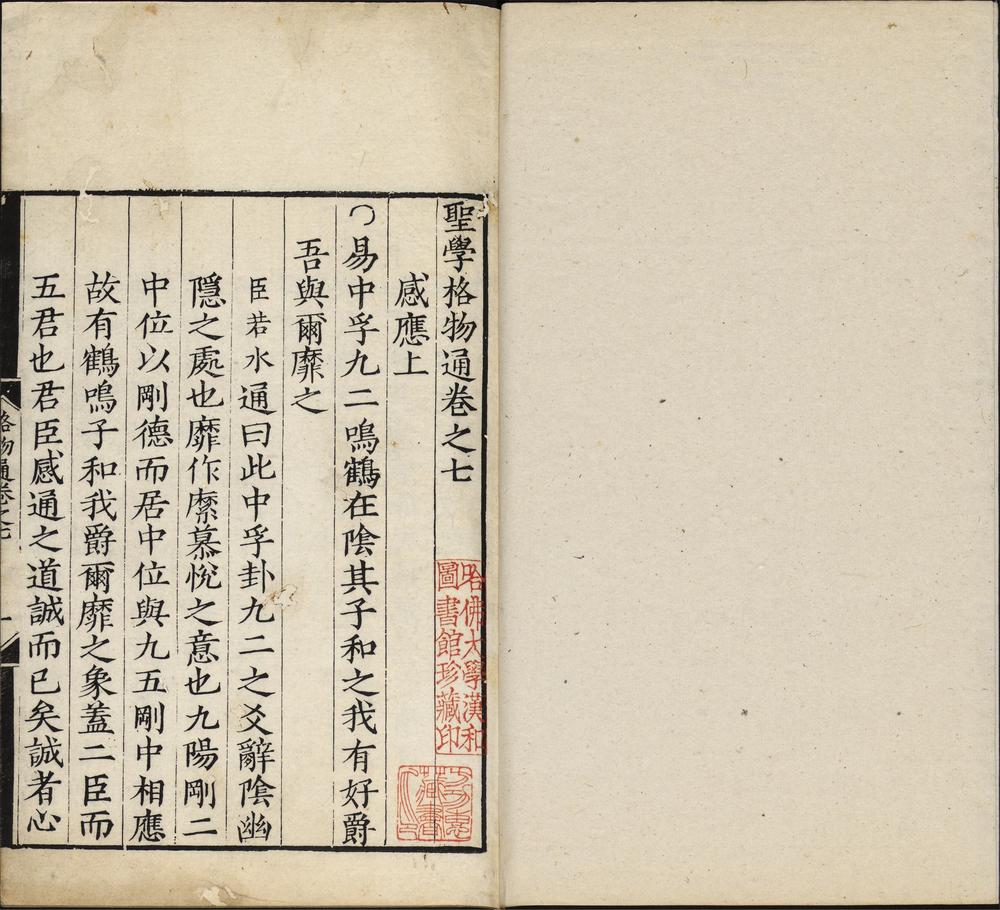 聖學格物通卷之七
感應上
○易中孚九二鳴鶴在陰其子和之我有好爵
吾與爾靡之
臣若水通曰此中孚卦九二之爻辭陰幽
隱之處也靡作縻慕悅之意也九陽剛二
中位以剛德而居中位與九五剛中相應
故有鶴鳴子和我爵爾靡之象蓋二臣而
五君也君臣感通之道誠而已矣誠者心
格物通卷之七
一
哈佛大學漢和
圖書館珍藏印
藏書